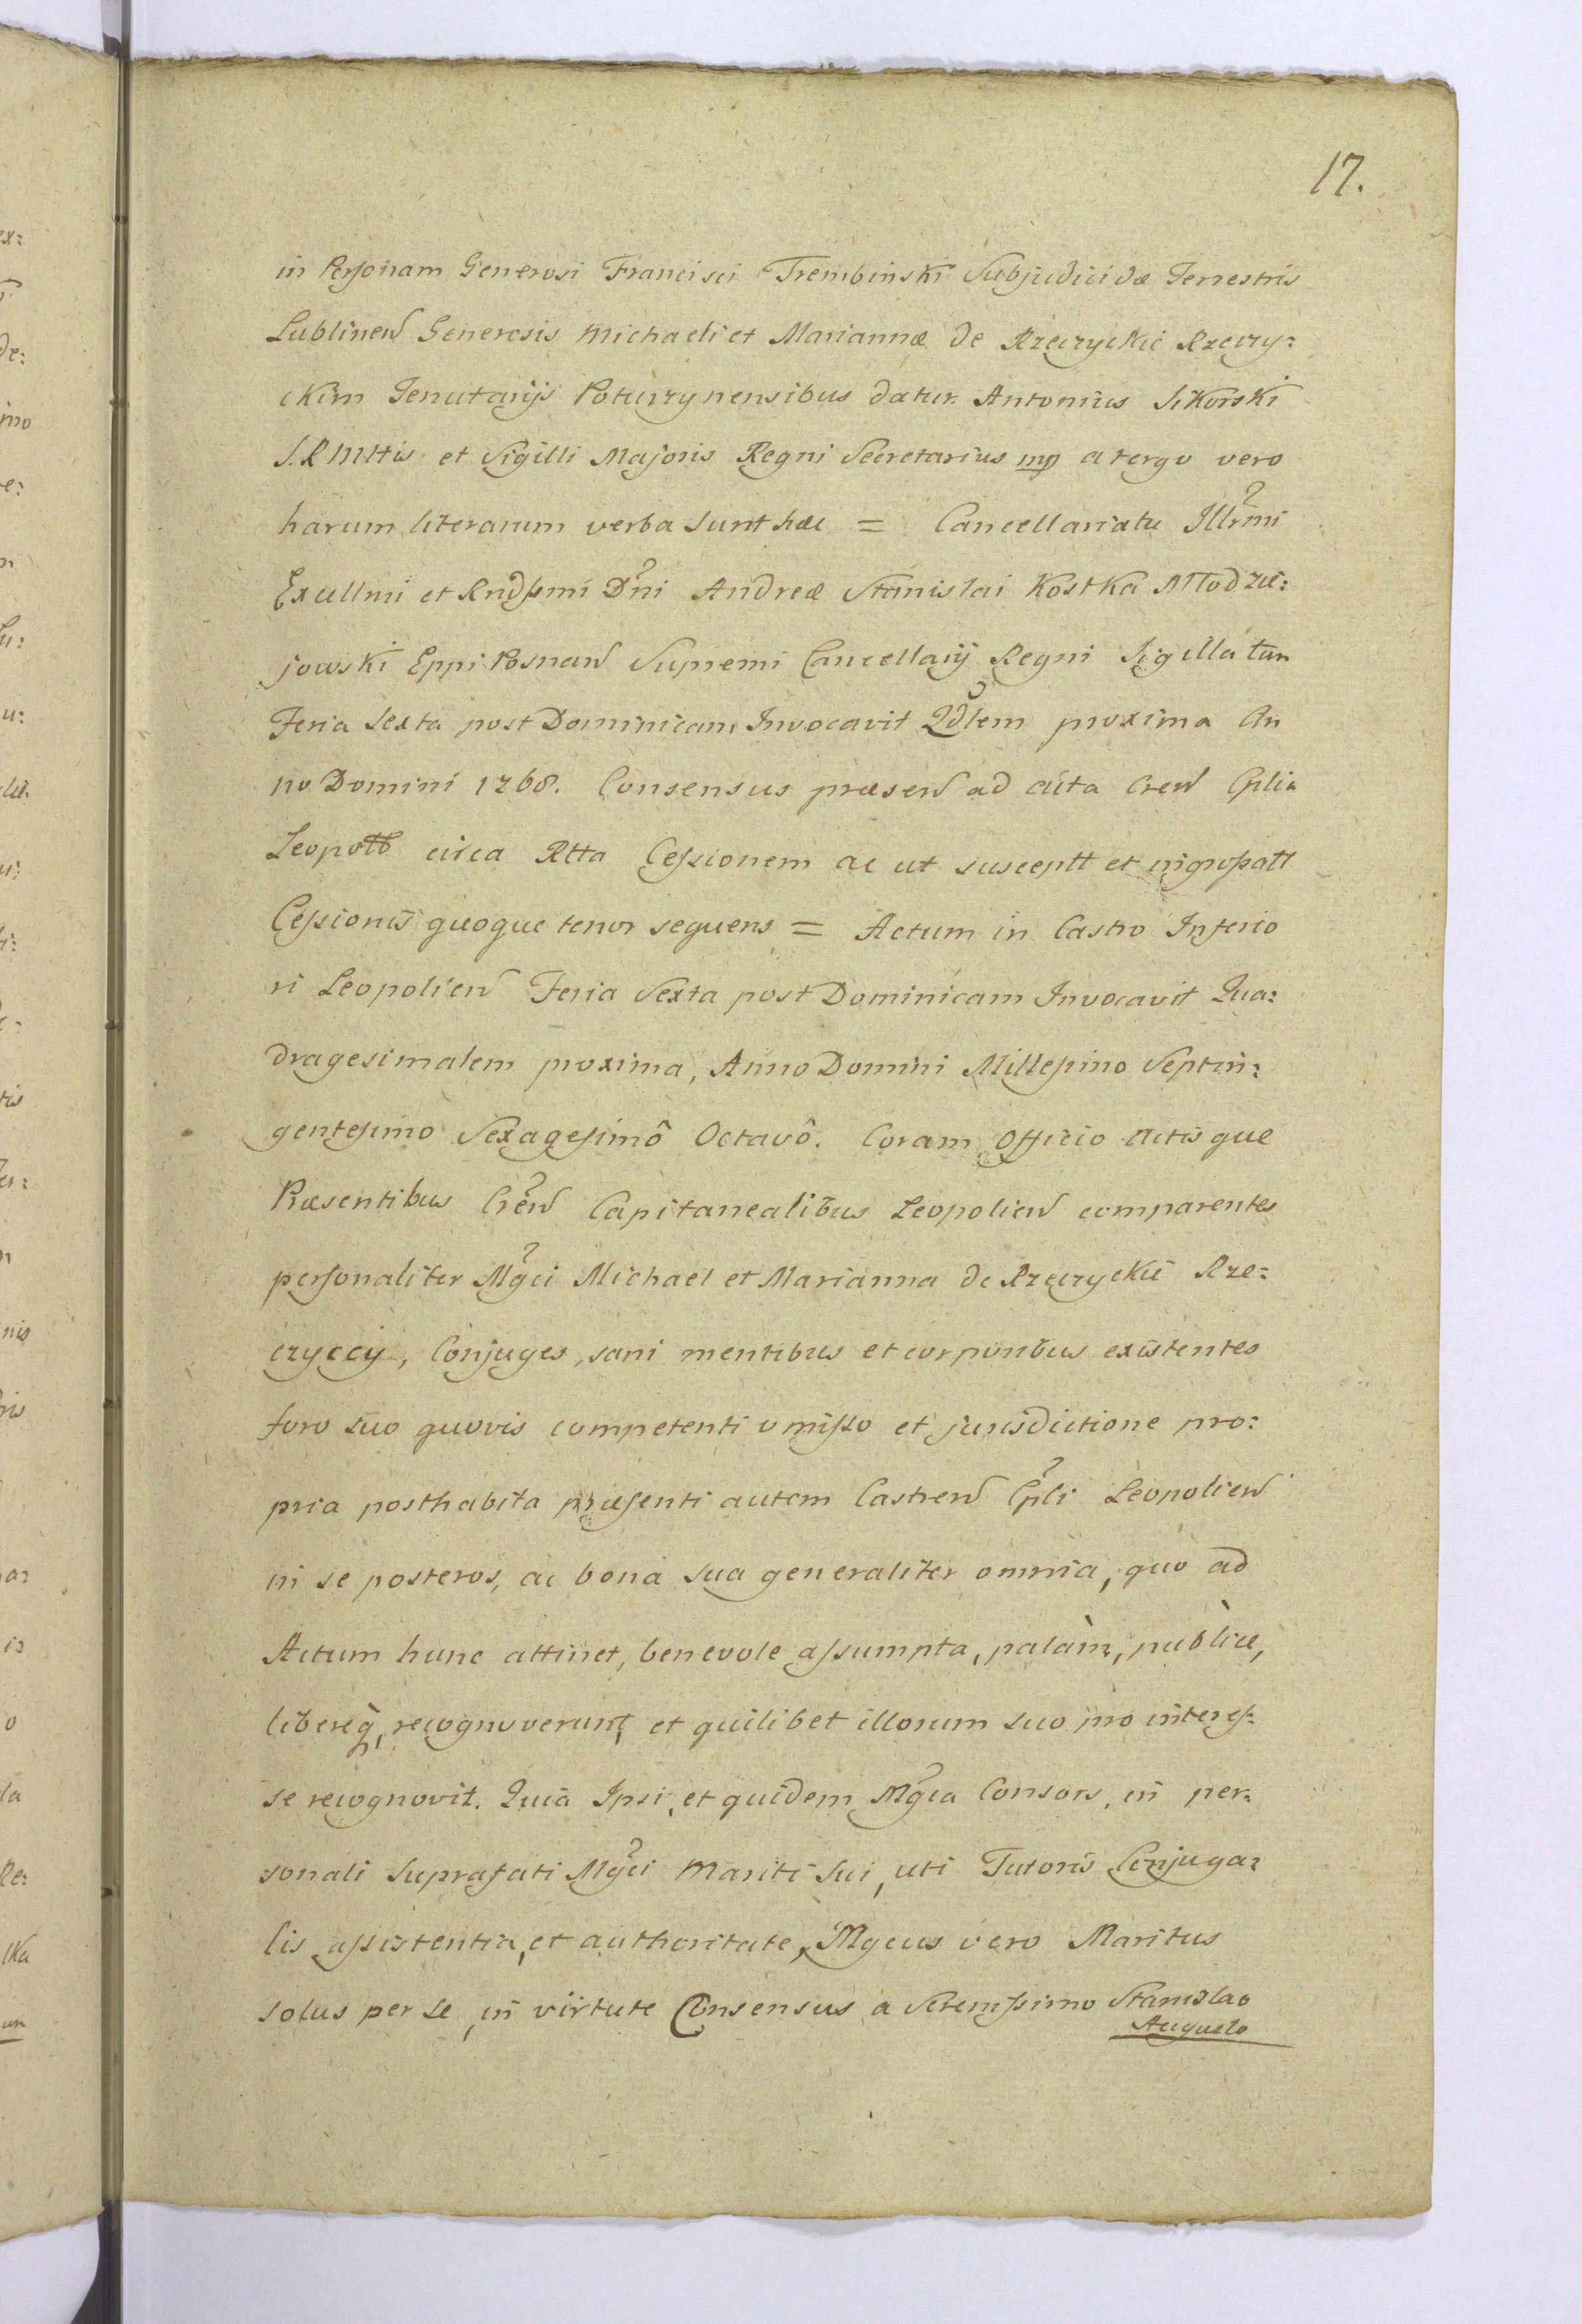 17.
in Personam Generosi Francisci Trembinski Subjudicidæ Terrestris
Lublinen Generosis Michaeli et Mariannæ de Rzeczyckie Rzeczy:
ckim Tenutarijs Poturzynensibus datur. Antonius Sikorski
S. R Mttis et Sigilli Majoris Regni Secretarius mp a tergo vero
harum literarum verba sunt hæc = Cancellariatu Illrmi
Excellmi et Rndssmi Dni Andreæ Stanislai Kostka Młodzie:
jowski Eppi Posnan Supremi Cancellarij Regni Sigillatum
Feria Sexta post Dominicam Invocavit Qdlem proxima An
no Domini 1768. Consensus præsen ad acta Cren Cplia
Leopoll circa Rtta Cessionem ac ut susceptt et ingrossatt
Cessionis quoque tenor sequens = Actum in Castro Inferio
ri Leopolien Feria Sexta post Dominicam Invocavit Qua:
dragesimalem proxima, Anno Domini Millesimo Septin:
gentesimo Sexagesimô Octavô. Coram Officio Actisque
Præsentibus Cren Capitanealibus Leopolien comparentes
personaliter Mgci Michael et Marianna de Rzeczyckie Rze:
czyccy, Conjuges, sani mentibus et corporibus existentes
foro suo quovis competenti omisso et jurisdictione pro:
pria posthabita præsenti autem Castren Cpli Leopolien
in se posteros, ac bona sua generaliter omnia, quo ad
Actum hunc attinet, benevole assumpta, palàm, publicè,
libereq, recognoverunt, et quilibet illorum suo pro interes:
se recognovit. Quia Ipsi, et quidem Mgca Consors, in per:
sonali suprafati Mgci Mariti sui, uti Tutoris Conjuga:
lis assistentia, et authoritate, Mgcus vero Maritus
solus per se, in virtute Consensus a Serenissimo Stanislao
Augusto